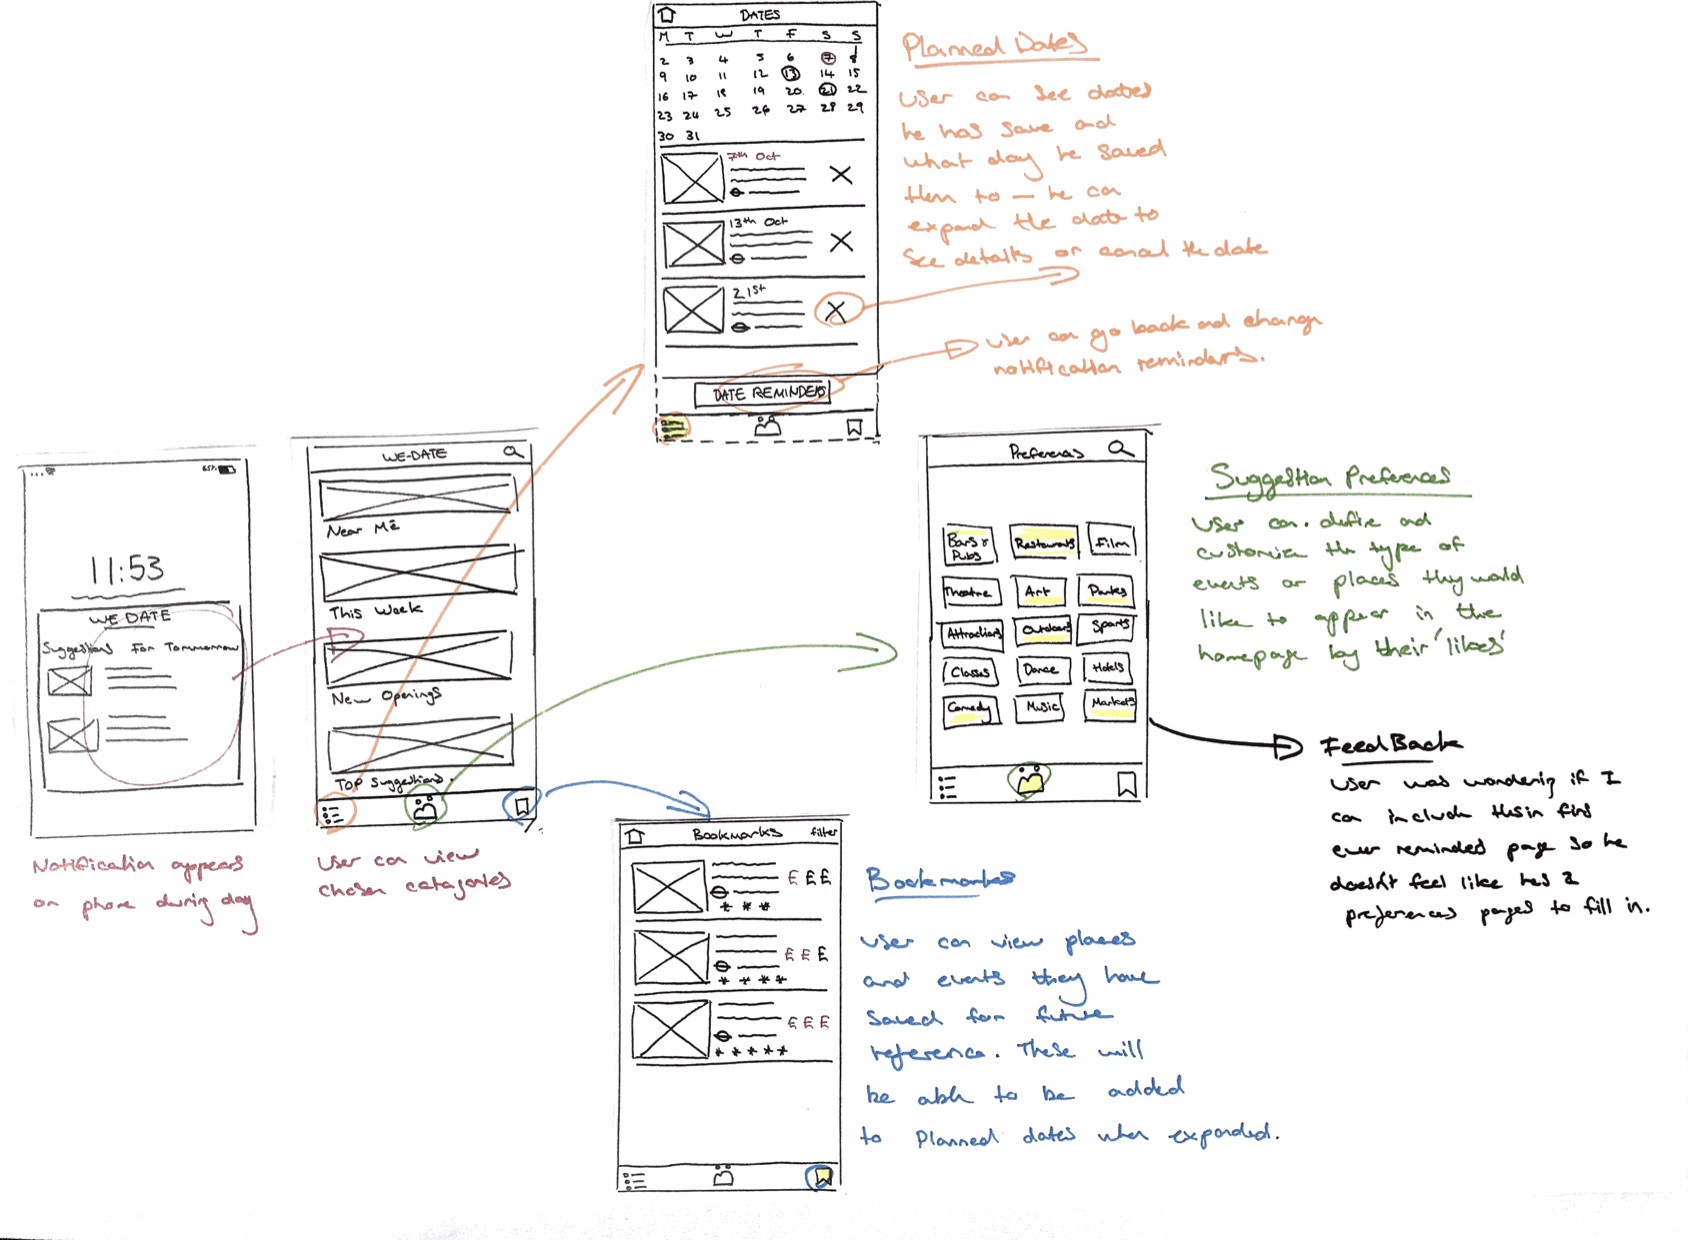 DATES
M T W T F S S
2 3 4 5 6 7 8
9 10 11 12 13 14 15
16 17 18 19 20 21 22
23 24 25 26 27 28 29
30 31
7th Oct
13th Oct
21st
DATE REMINDERS
Planned Dates
User can see dates
he has save and
what day he saved
them to — he can
expand the date to
see details or cancel the date
User can go back and change
notification reminders.
65%
11:53
WE DATE
Suggestions For Tommorrow
Notification appears
on phone during day
WE-DATE
Near Me
This Week
New Openings
Top Suggestions.
User can view
chosen catagories
Preferences
Bars &
Pubs
Restaurants
Film
Theatre
Art
Parties
Attractions
Outdoors
Sports
Classes
Dance
Hotels
Comedy
Music
Markets
Suggestion Preferences
User can define and
customize the type of
events or places they would
like to appear in the
homepage by their 'likes'
FeedBack
User was wondering if I
can include this in first
ever reminded page so he
doesn't feel like he's 2
preferences pages to fill in.
Bookmarks filter
£ £ £
* * *
£ £ £
* * * *
£ £ £
* * * * *
Bookmarks
User can view places
and events they have
saved for future
reference. These will
be able to be added
to Planned dates when expanded.